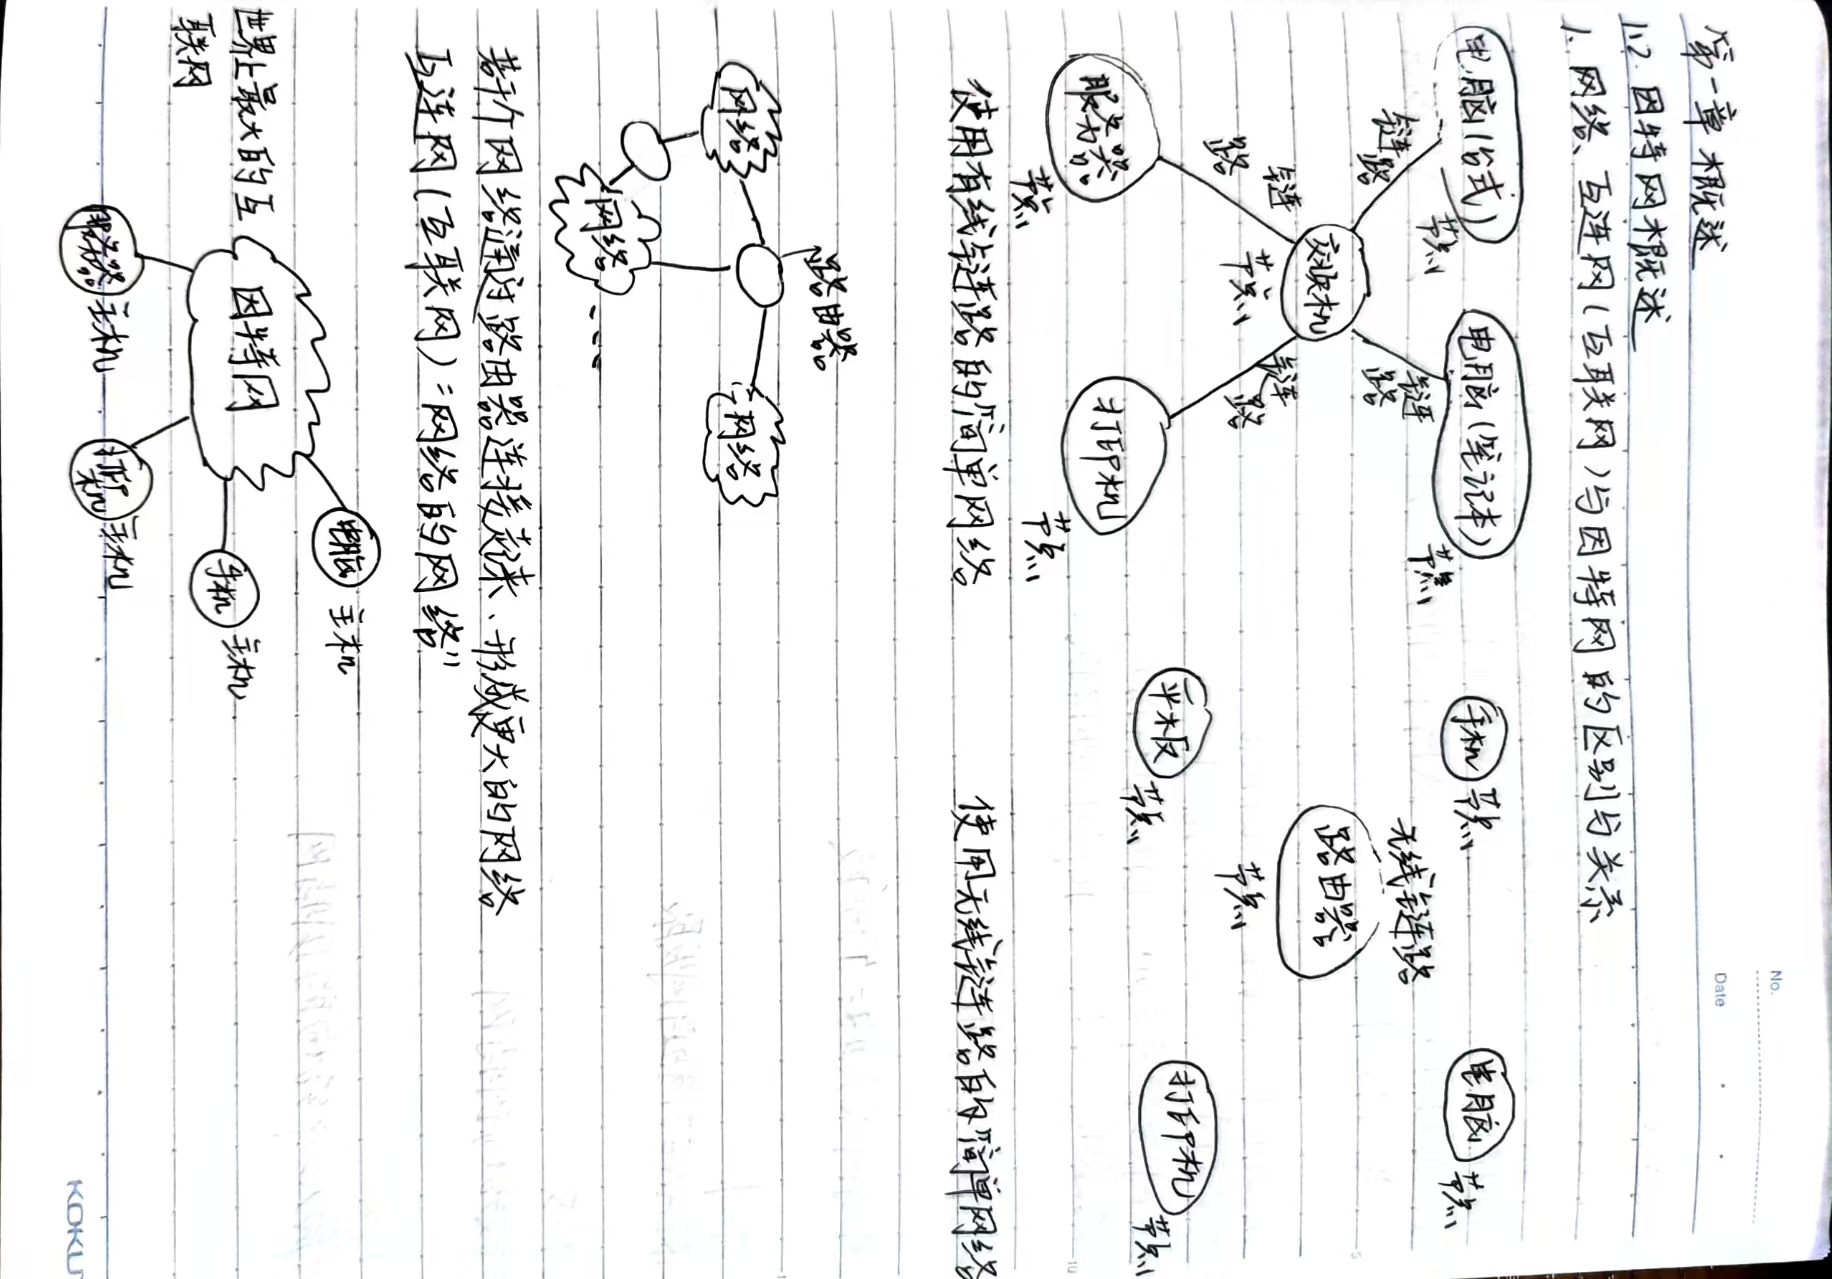 No.
Date
第一章 概述
1.2. 因特网概述
1. 网络、互连网(互联网)与因特网的区别与关系
电脑(台式)
节点
电脑(笔记本)
节点
手机
节点
电脑
节点
链路
链路
无线链路
交换机
节点
路由器
节点
链路
链路
服务器
节点
打印机
节点
平板
节点
打印机
节点
使用有线链路的简单网络
使用无线链路的简单网络
路由器
网络
网络
网络
若干个网络通过路由器连接起来、形成更大的网络
互连网(互联网):网络的网络"
世界上最大的互
联网
因特网
电脑
主机
手机
主机
服务器
主机
打印机
主机